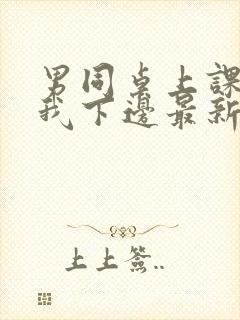 男同桌上課
我下邊最新
上上簽..